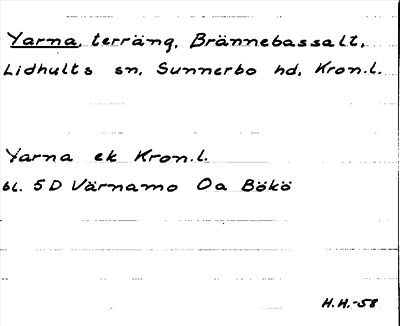 Yarna, terräng, Brännebassalt,
Lidhults sn, Sunnerbo hd, Kron.l.
Yarna ek Kron.l.
bl. 5D Värnamo Oa Bökö
H.H.-58